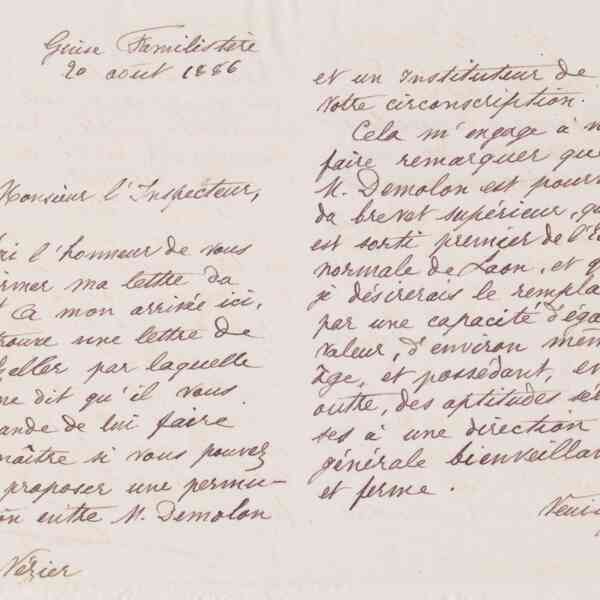 Guise Familistère
20 août 1886
Monsieur l'Inspecteur,
l'honneur de vous
ma lettre du
A mon arrivée ici,
trouve une lettre de
par laquelle
me dit qu'il vous
de lui faire
si vous pouvez
proposer une permu-
entre M. Demolon
Vézier
et un Instituteur de
votre circonscription.
Cela m'engage à
faire remarquer que
M. Demolon est
du brevet supérieur,
est sorti premier de
normale de Laon, et
je désirerais le
par une capacité
valeur, d'environ
âge, et possédant, en
outre, des aptitudes
ses à une direction
générale
et ferme.